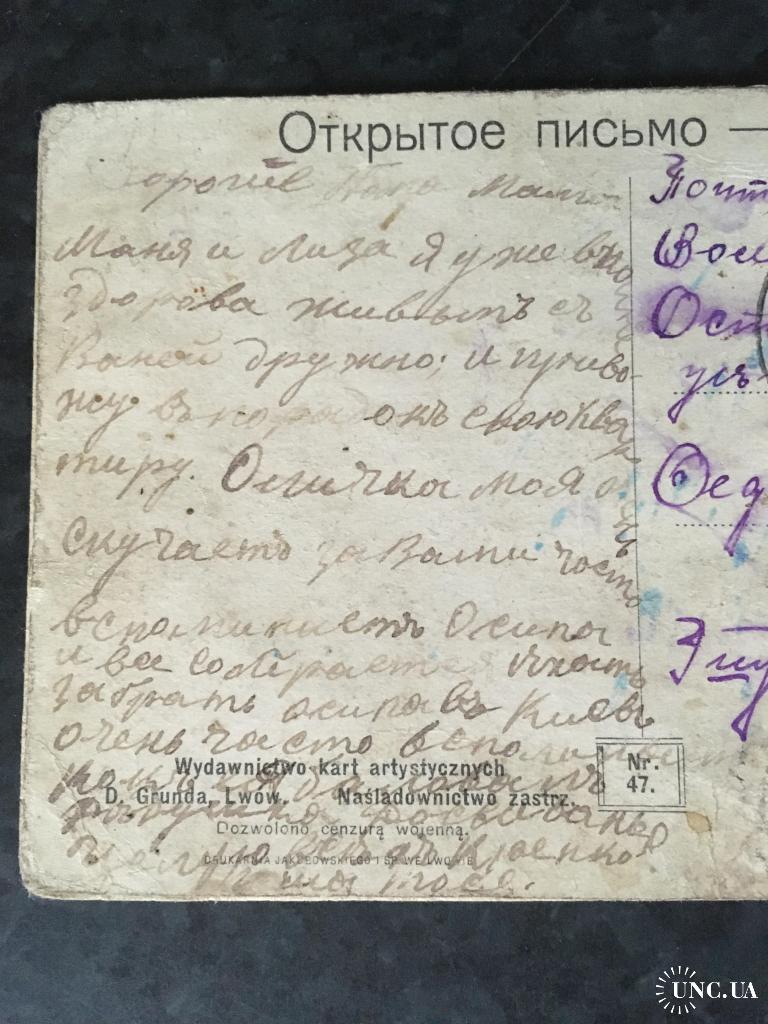 Открытое письмо —
Дорогие Папа Мама
Маня и Лиза Я уже вполне
здорова живемъ съ
Ваней дружно; и приво-
жу въ порядокъ свою квар
тиру. Осичка моя очень
скучаетъ за Вами часто
вспоминаетъ Осипа
и все собирается ехать
забрать осипа въ Киевъ
очень часто вспоминает
досвидань
целую Всех Крепко
Ваша Тося.
Wydawnictwo kart artystycznych
D. Grunda, Lwów. Naśladownictwo zastrz.
Dozwolono cenzurą wojenną.
DRUKARNIA JAKUBOWSKIEGO I SP. WE LWOWIE
Nr.
47.
Почт
Вол
Ост
усъ
Фед
Эшу
UNC.UA